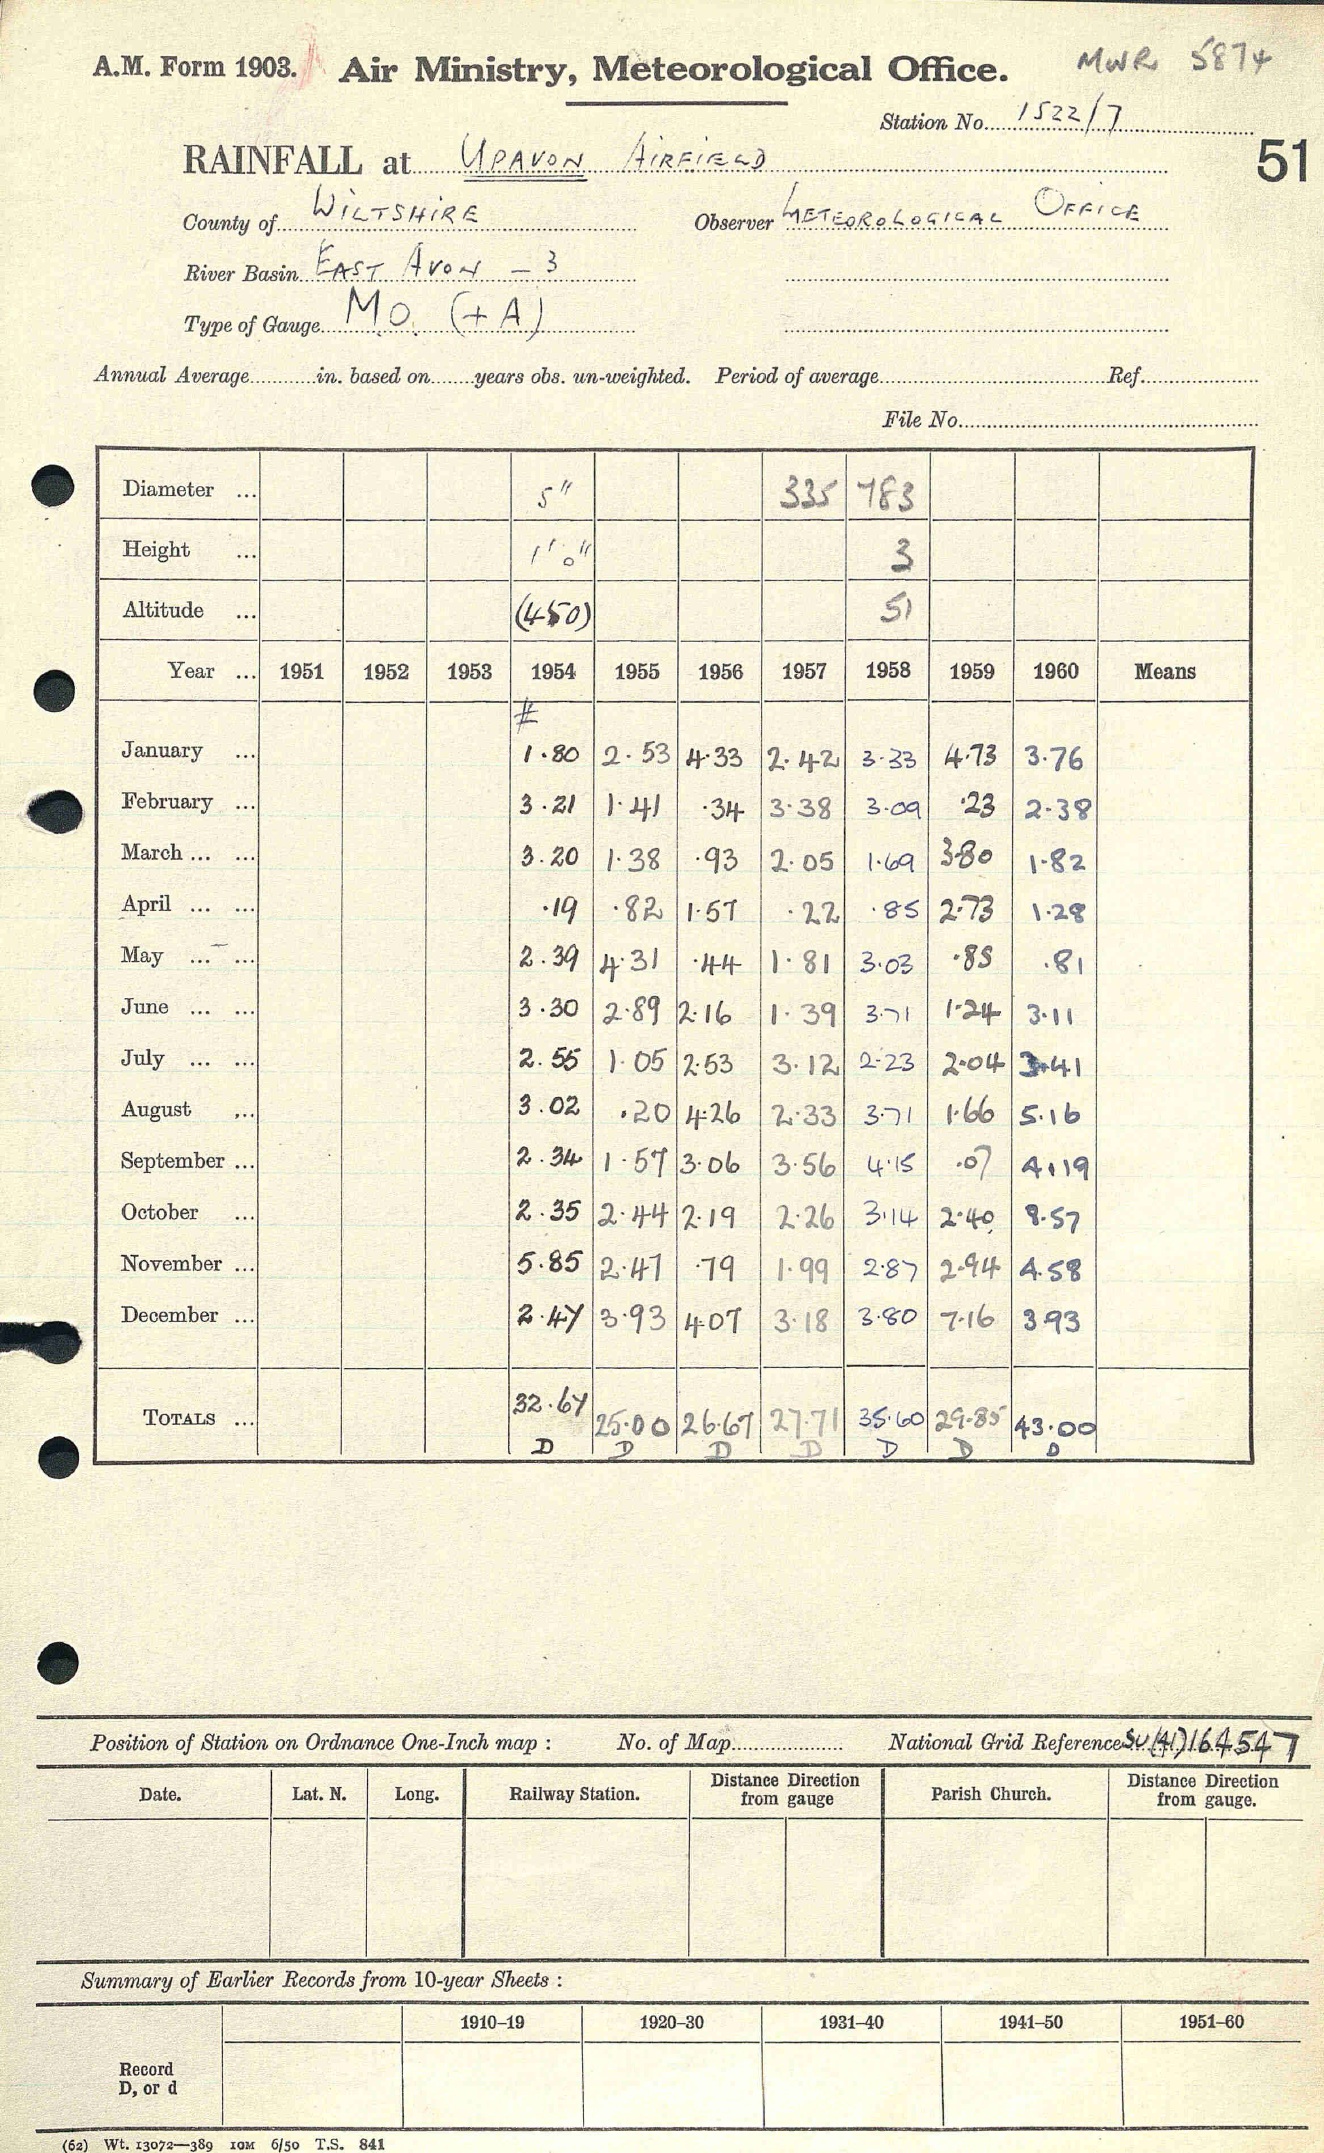 A.M. Form 1903. Air Ministry, Meteorological Office. MWR 5874
Station No. 1522/7
RAINFALL at UPAVON AIRFIELD 51
County of WILTSHIRE Observer METEOROLOGICAL OFFICE
River Basin EAST AVON – 3
Type of Gauge M.O. (+A)
Annual Average in. based on years obs. un-weighted. Period of average Ref.
File No.
Diameter ... 5" 335 783
Height ... 1' 0" 3
Altitude ... (450) 51
Year ... 1951 1952 1953 1954 1955 1956 1957 1958 1959 1960 Means
#
January ... 1.80 2.53 4.33 2.42 3.33 4.73 3.76
February ... 3.21 1.41 .34 3.38 3.09 .23 2.38
March ... ... 3.20 1.38 .93 2.05 1.69 3.80 1.82
April ... ... .19 .82 1.57 .22 .85 2.73 1.28
May ... ... 2.39 4.31 .44 1.81 3.03 .85 .81
June ... ... 3.30 2.89 2.16 1.39 3.71 1.24 3.11
July ... ... 2.55 1.05 2.53 3.12 2.23 2.04 3.41
August ... 3.02 .20 4.26 2.33 3.71 1.66 5.16
September ... 2.34 1.57 3.06 3.56 4.15 .07 4.19
October ... 2.35 2.44 2.19 2.26 3.14 2.40 8.57
November ... 5.85 2.47 .79 1.99 2.87 2.94 4.58
December ... 2.47 3.93 4.07 3.18 3.80 7.16 3.93
TOTALS ... 32.67 25.00 26.67 27.71 35.60 29.85 43.00
D D D D D D D
Position of Station on Ordnance One-Inch map : No. of Map National Grid Reference SU(41)164547
Date. Lat. N. Long. Railway Station. Distance from gauge Direction Parish Church. Distance from gauge. Direction
Summary of Earlier Records from 10-year Sheets :
1910–19 1920–30 1931–40 1941–50 1951–60
Record
D, or d
(62) Wt. 13072—389 10M 6/50 T.S. 841